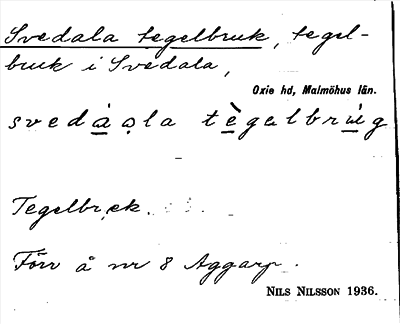 Svedala tegelbruk, tegel-
bruk i Svedala,
Oxie hd, Malmöhus län.
svedàọla tègəlbrùg
Tegelbruk.
Förr å nr 8 Aggarp.
NILS NILSSON 1936.